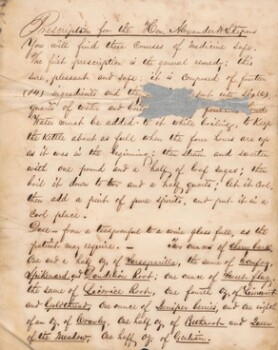 Prescription for the Hon. Alexander H. Stephens
You will find these courses of medicine safe.
The first prescription is the general remedy; this
is pleasant and safe; it is composed of
ingredients and put into six (6)
quarts of water and
Water must be added to it while boiling, to keep
the kettle about as full when the four hours are up
as it was in the beginning; then strain and sweeten
with one pound and a half of loaf sugar; then
boil it down to two and a half quarts; let it cool
then add a pint of pure spirits, and put it in a
cool place.
Dose— from a teaspoonful to a wine glass full, as the
patient may require. — Two ounces of Cherry bark
One and a half oz of Sarsaparilla, the same of Comfrey,
Spikenard and Dandelion Root; one ounce of
the same of Licorice Root, one fourth oz of
and Goldthread, one ounce of Juniper berries, and an eighth
of an oz of One half oz of and Queen
of the Meadow, One half oz of Gentian.